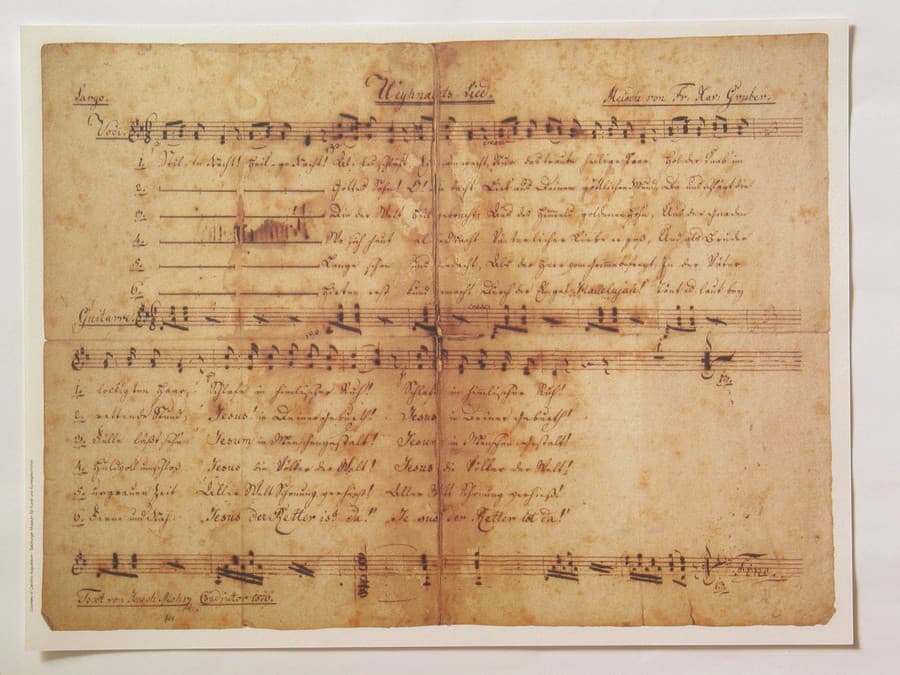 Weyhnachts-Lied.
Largo. Melodie von Fr. Xav. Gruber.
Voci.
1. Stille Nacht! Heilige Nacht! Alles schläft. Eynsam wacht, Nur das traute heilige Paar. Holder Knab' im
2. Gottes Sohn! O! wie lacht Lieb' aus Deinem göttlichen Mund, Da uns schlägt die
3. Die der Welt Heil gebracht, Aus des Himmels goldenen Höhn, Uns der Gnaden
4. Wo sich heut alle Macht Väterlicher Liebe ergoß, Und als Bruder
5. Lange schon uns bedacht, Als der Herr vom Grimme befreyt, In der Väter
6. Hirten erst kundgemacht Durch der Engel Hallelujah! Tönt es laut bey
Guitarre.
1. lockigten Haar, Schlafe in himmlischer Ruh! Schlafe in himmlischer Ruh!
2. rettende Stund; Jesus! in Deiner Geburth! Jesus in Deiner Geburth!
3. Fülle läßt sehn Jesum in Menschengestalt! Jesum in Menschengestalt!
4. Huldvoll umschloß Jesus die Völker der Welt! Jesus die Völker der Welt!
5. urgrauer Zeit Aller Welt Schonung verhieß! Aller Welt Schonung verhieß!
6. Ferne und Nah: "Jesus der Retter ist da!" "Jesus der Retter ist da!"
Fine.
Text von Joseph Mohr Coadjutor 1816.